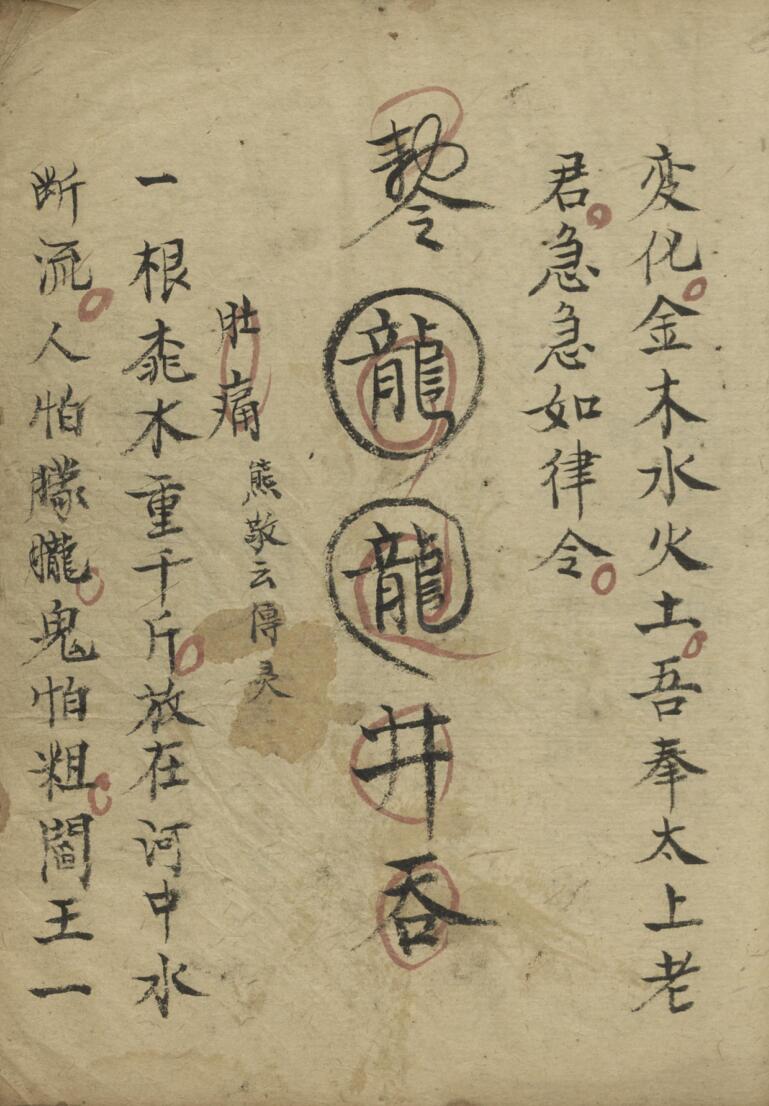 変化金木水火土吾奉太上老
君急急如律令
勅令龍龍井吞
肚痛
熊敬云傳灵
一根桃木重千斤放在河中水
断流人怕朦朧鬼怕粗閻王一